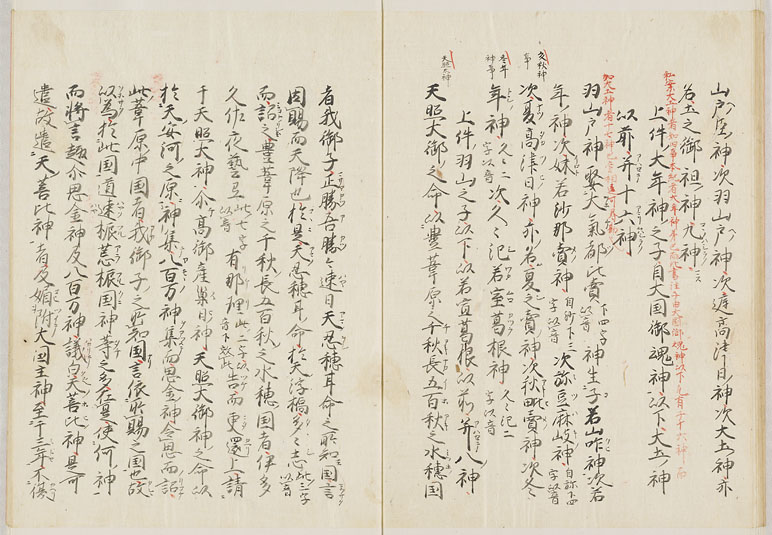 山戸臣神次羽山戸神次庭高津日神次大土神亦
名土之御祖神九神
上件大年神之子自大国御魂神以下大土神
以前并十六神
羽山戸神娶大気都比売下四字以音神生子若山咋神次若
年神次妹若沙那売神自沙下三字以音次弥豆麻岐神自弥下四字以音
次夏高津日神亦名夏之売神次秋毗売神次久々
年神久々二字以音次久々紀若室葛根神久々紀三字以音
上件羽山之子以下以若室葛根以前并八神
天照大御之命以豊葦原之千秋長五百秋之水穂国
者我御子正勝吾勝々速日天忍穂耳命之所知国言
因賜而天降也於是天忍穂耳命於天浮橋多々志此三字以音
而詔之豊葦原之千秋長五百秋之水穂国者伊多
久佐夜藝弖此七字以音有那理此二字以音下效此告而更還上請
于天照大神尒高御産巣日神天照大御神之命以
於天安河之原神集八百万神集而思金神令思而詔
此葦原中国者我御子之所知国言依所賜之国也故
以為於此国道速振荒振国神等之多在是使何神
而将言趣尒思金神及八百万神議白天善比神是可
遣故遣天善比神者及媚附大国主神至于三年不復